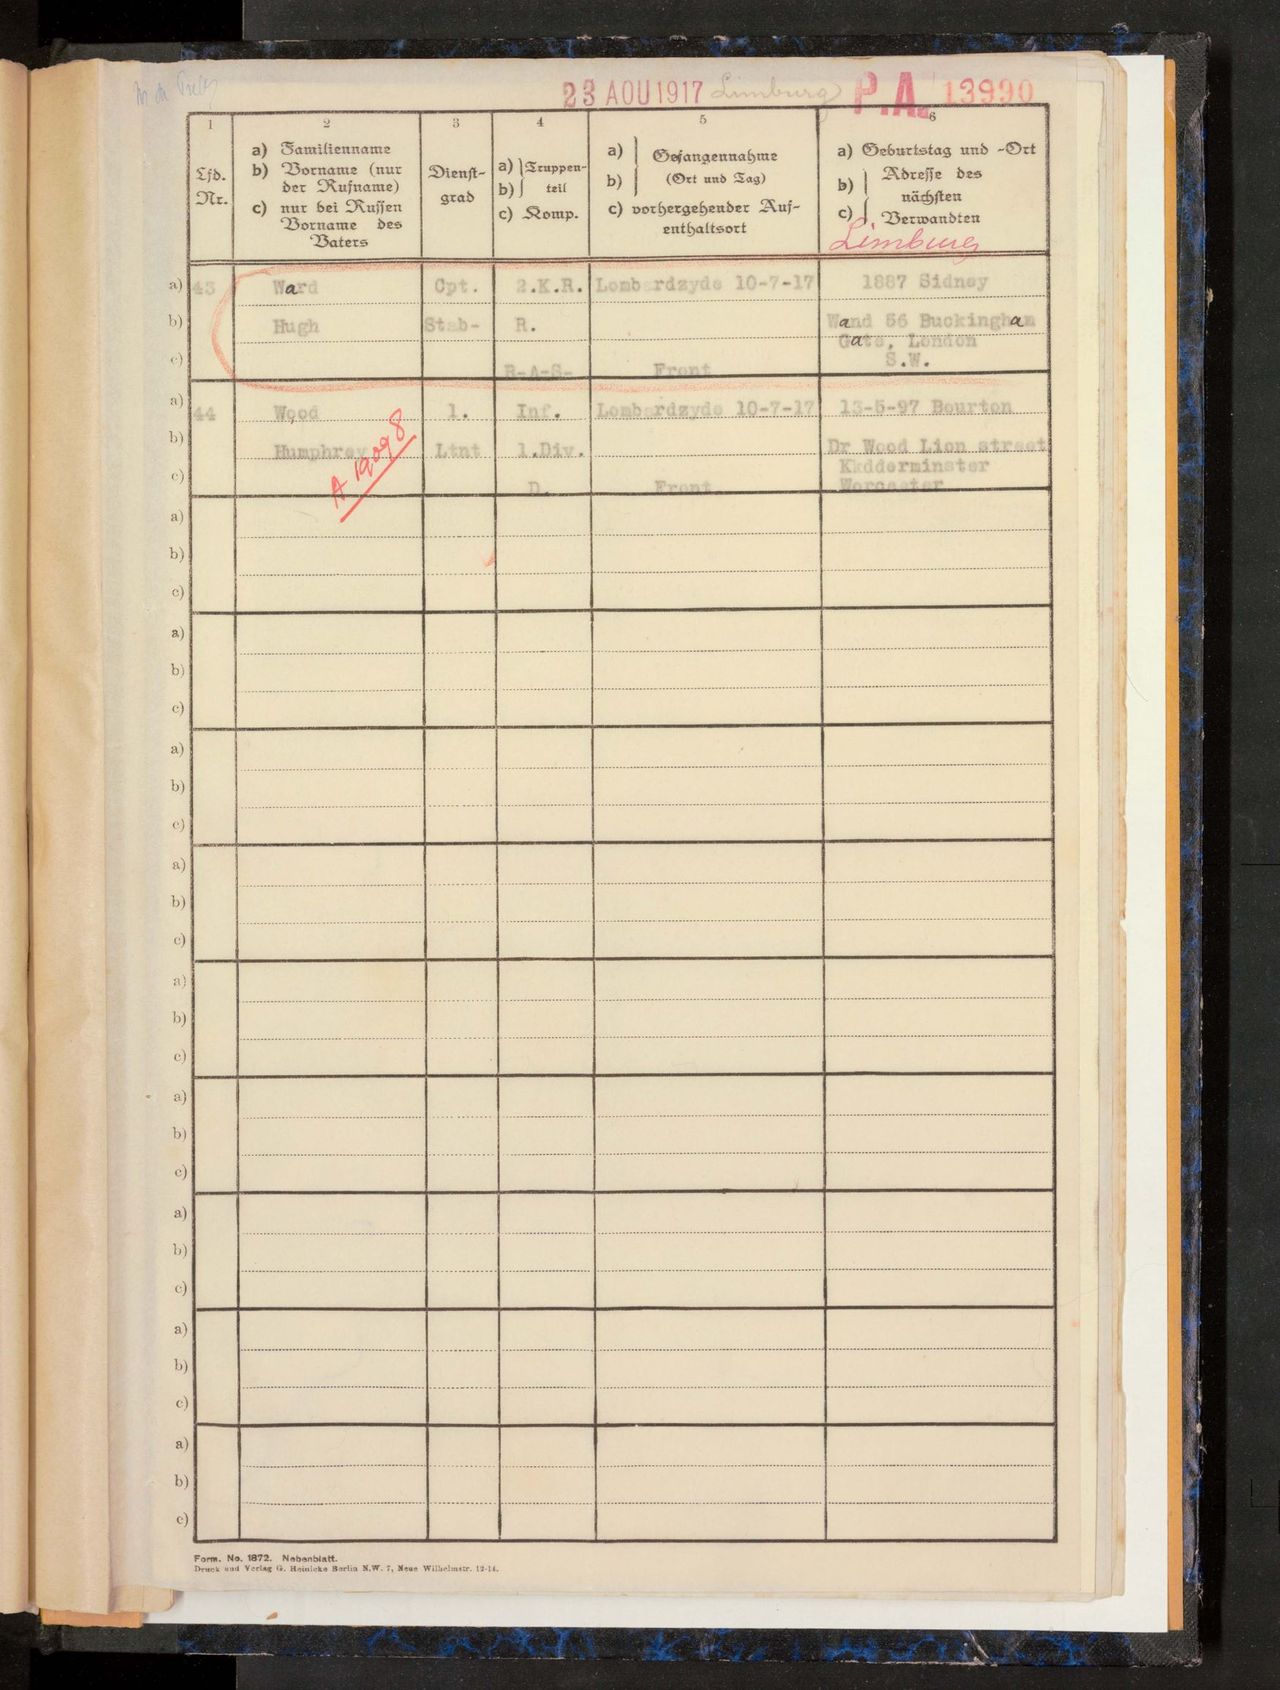 23 AOU 1917 Limburg P.A. 13990
1 2 3 4 5 6
Lfd. Nr.
a) Familienname
b) Vorname (nur
der Rufname)
c) nur bei Russen
Vorname des
Vaters
Dienst-
grad
a) Truppen-
b) teil
c) Komp.
a) Gefangennahme
b) (Ort und Tag)
c) vorhergehender Auf-
enthaltsort
a) Geburtstag und -Ort
b) Adresse des
nächsten
c) Verwandten
Limburg
a) 43 Ward Cpt. 2.K.R. Lombardzyde 10-7-17 1887 Sidney
b) Hugh Stab- R. Wand 56 Buckingham
Gate, London
c) R-A-S- Front S.W.
a) 44 Wood 1. Inf. Lombardzyde 10-7-17 13-5-97 Bourton
b) Humphrey Ltnt 1.Div. Dr Wood Lion street
Kkdderminster
c) D. Front Worcester
A 19098
a)
b)
c)
a)
b)
c)
a)
b)
c)
a)
b)
c)
a)
b)
c)
a)
b)
c)
a)
b)
c)
a)
b)
c)
a)
b)
c)
Form. No. 1872. Nebenblatt.
Druck und Verlag G. Heinicke Berlin N.W. 7, Neue Wilhelmstr. 12-14.